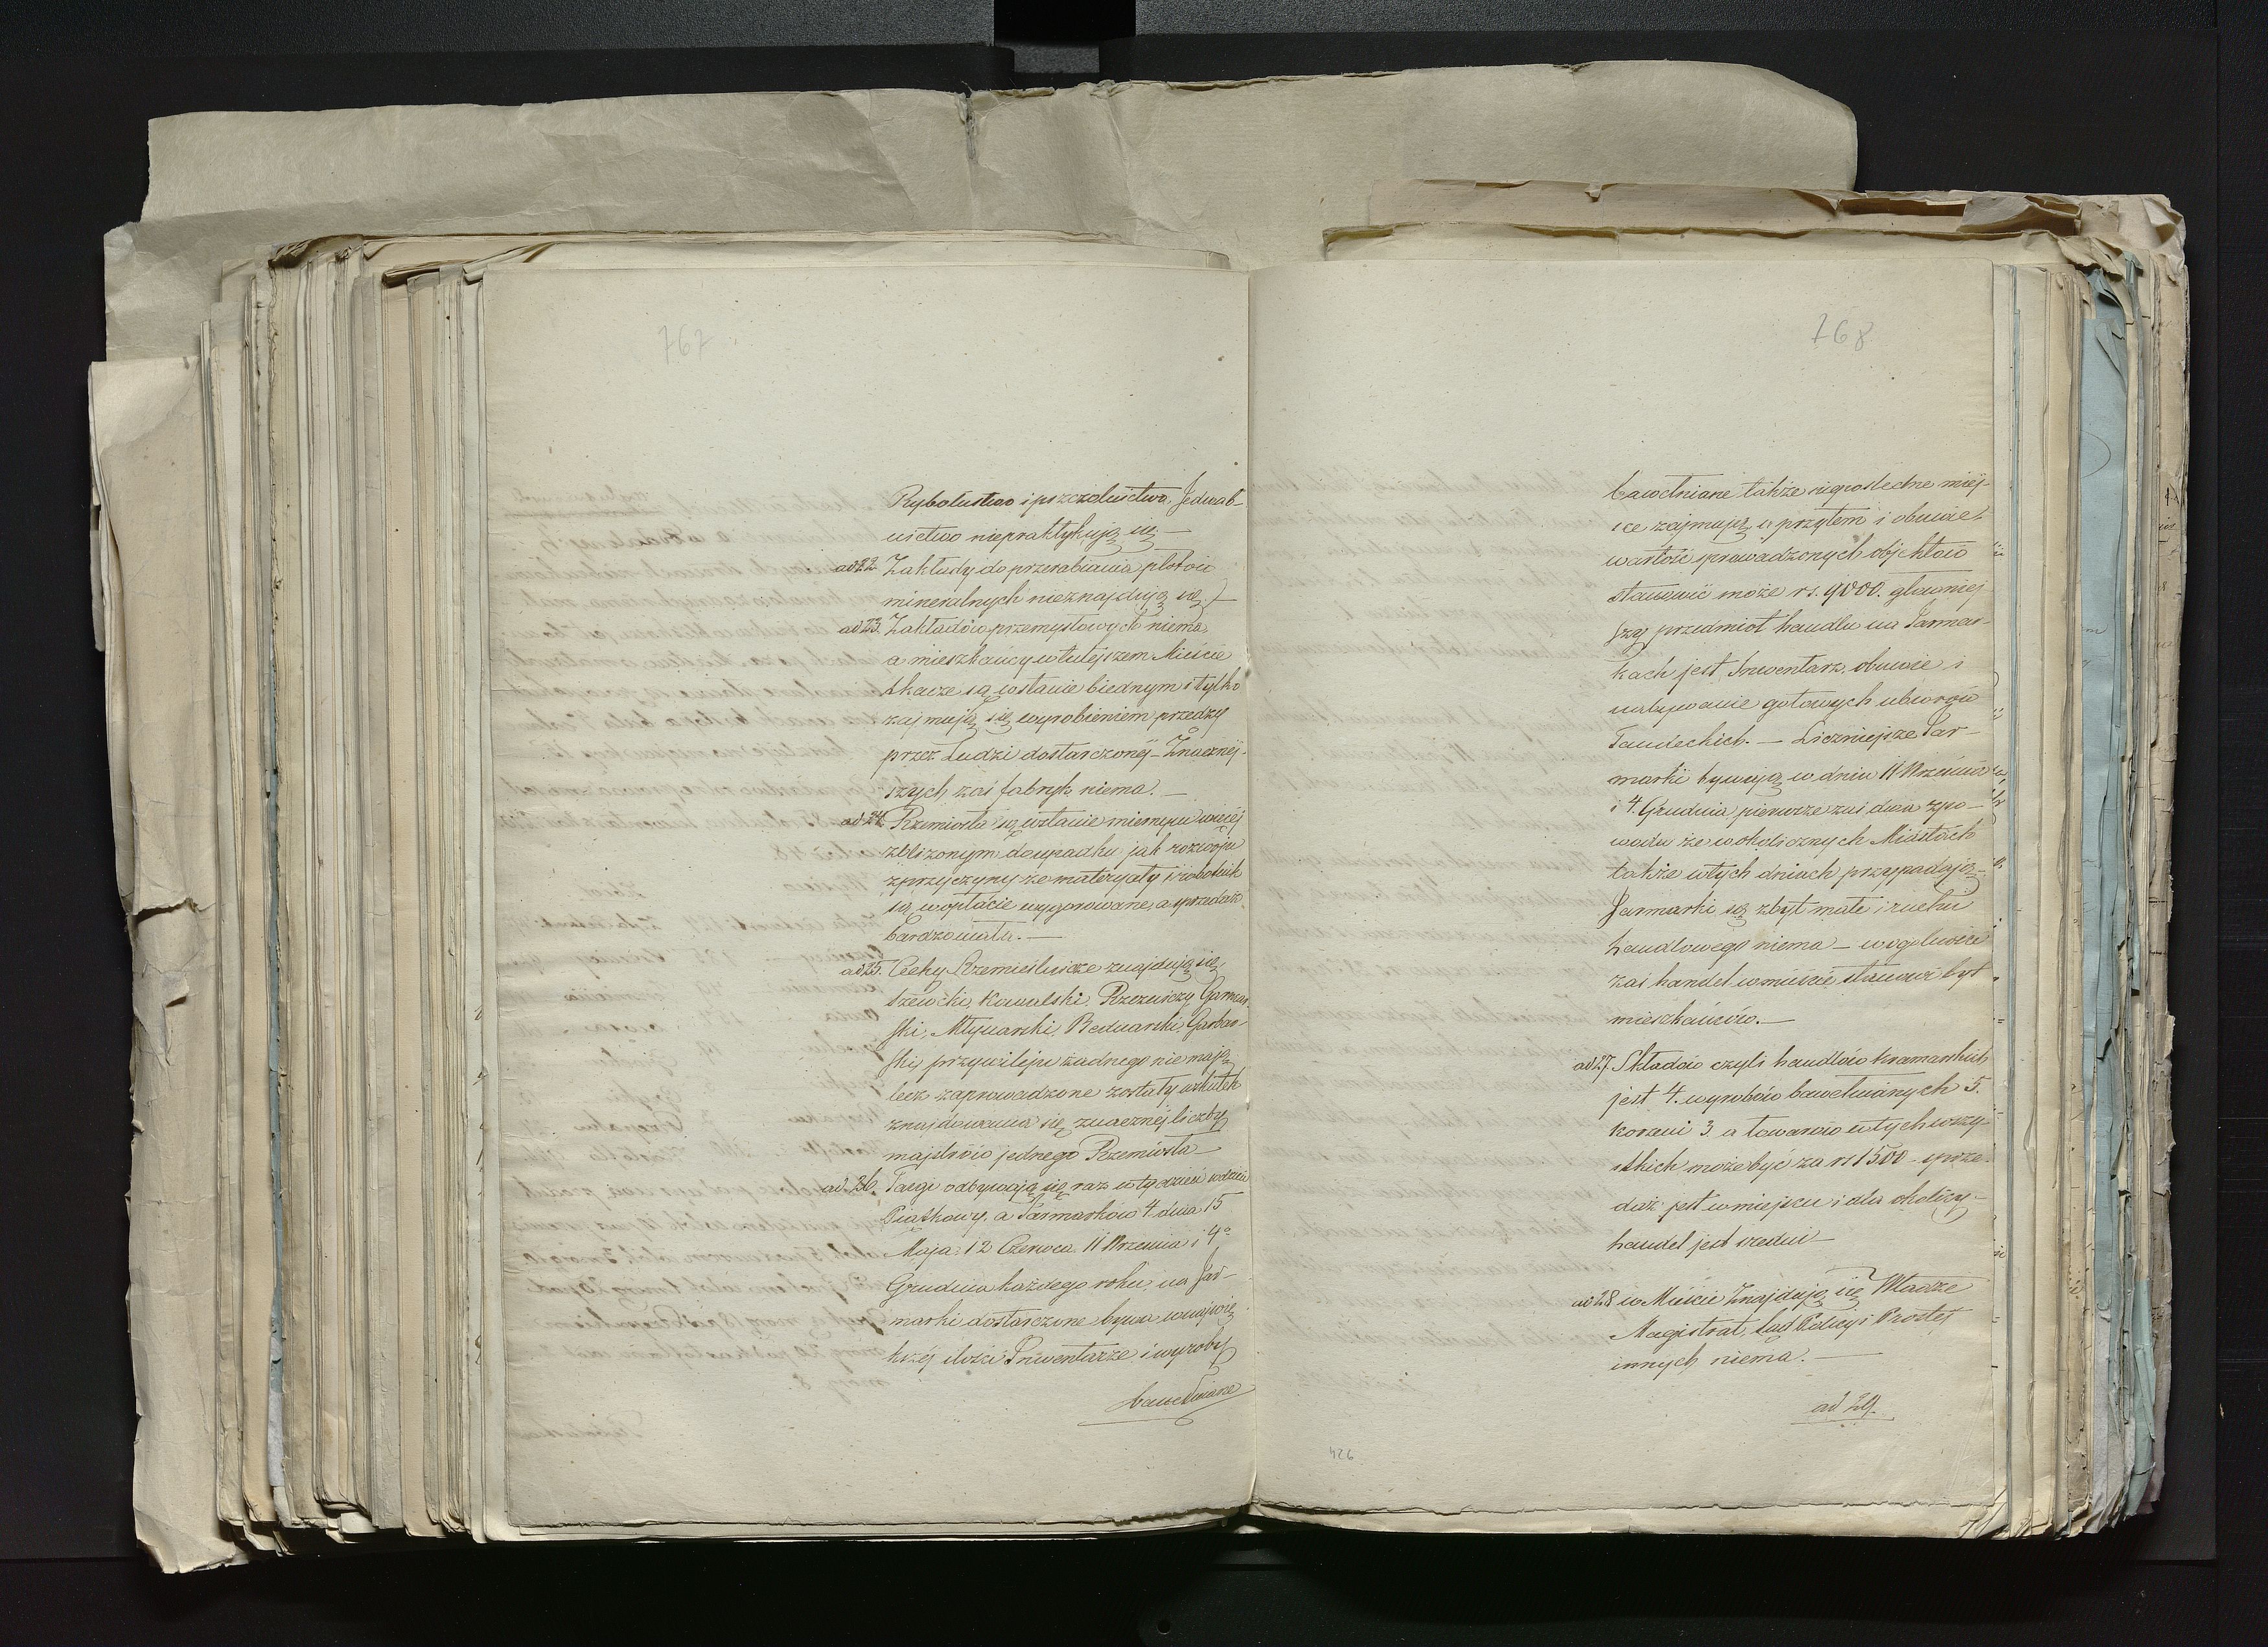 767
Rybołustwo i pszczolnictwo, Jedwab-
nictwo niepraktykują się —
ad 22. Zakłady do przerabiania płodów
mineralnych nieznajdują się. —
ad 23. Zakładów przemysłowych niema,
a mieszkańcy w tutejszem Mieście
tkacze są wstanie biednym i tylko
zajmują się wyrobieniem przędzy
przez Ludzi dostarczonéj — Znaczniéj-
szych zaś fabryk niema. —
ad 24. Rzemiosła są wstanie miernym więcéj
zbliżonym do upadku jak rozwoju
zprzyczyny że materyały i robotnik
są wopłacie wygorowane, a sprzedaż
bardzo mała. —
ad 25. Cechy Rzemieślnicze znajdują się,
szewcki, Kowalski, Rzeźniczy, Garncar
ski, Młynarski, Bednarski, Garbar-
ski, przywileju żadnego nie mają
lecz zaprowadzone zostały wskutek
znajdowania się znacznéj liczby
majstrów jednego Rzemiosła —
ad. 26. Targi odbywają się raz w tydzień w dzień
Piątkowy, a Jarmarków 4 dnia 15
Maja, 12 Czerwca 11 Września i 4o
Grudnia każdego roku, na Jar-
marki dostarczone bywa wnajwię
kszéj ilości Inwentarze i wyroby
bawełniane
768
bawełniane także niepoślednie miej-
sce zajmują, a przytem i obuwie,
wartość sprowadzonych objektów
stanowić może rs. 9000. głowniej
szy przedmiot handlu na Jarmar-
kach jest Inwentarz, obuwie i
nabywanie gotowych ubiorów
Tandeckich. — Liczniejsze Jar-
marki bywają w dniu 11 Września
i 4. Grudnia, pierwsze zaś dwa zpo-
wodu że wokolicznych Miastach
także wtych dniach przypadają
Jarmarki są zbyt małe i ruchu
handlowego niema — wogolności
zaś handel wmieście stanowi byt
mieszkańców. —
ad 27. Składów czyli handlów kramarskich
jest 4. wyrobów bawełnianych 5.
Korzeni 3. a towarów wtych wszy-
stkich może być za rs 1500 — sprze-
daż jest wmiejscu i dla okolicy —
handel jest średni —
ad 28 w Mieście Znajdują się Władze
Magistrat, Sąd Policyi Prostéj
innych niema. —
ad 29.
426